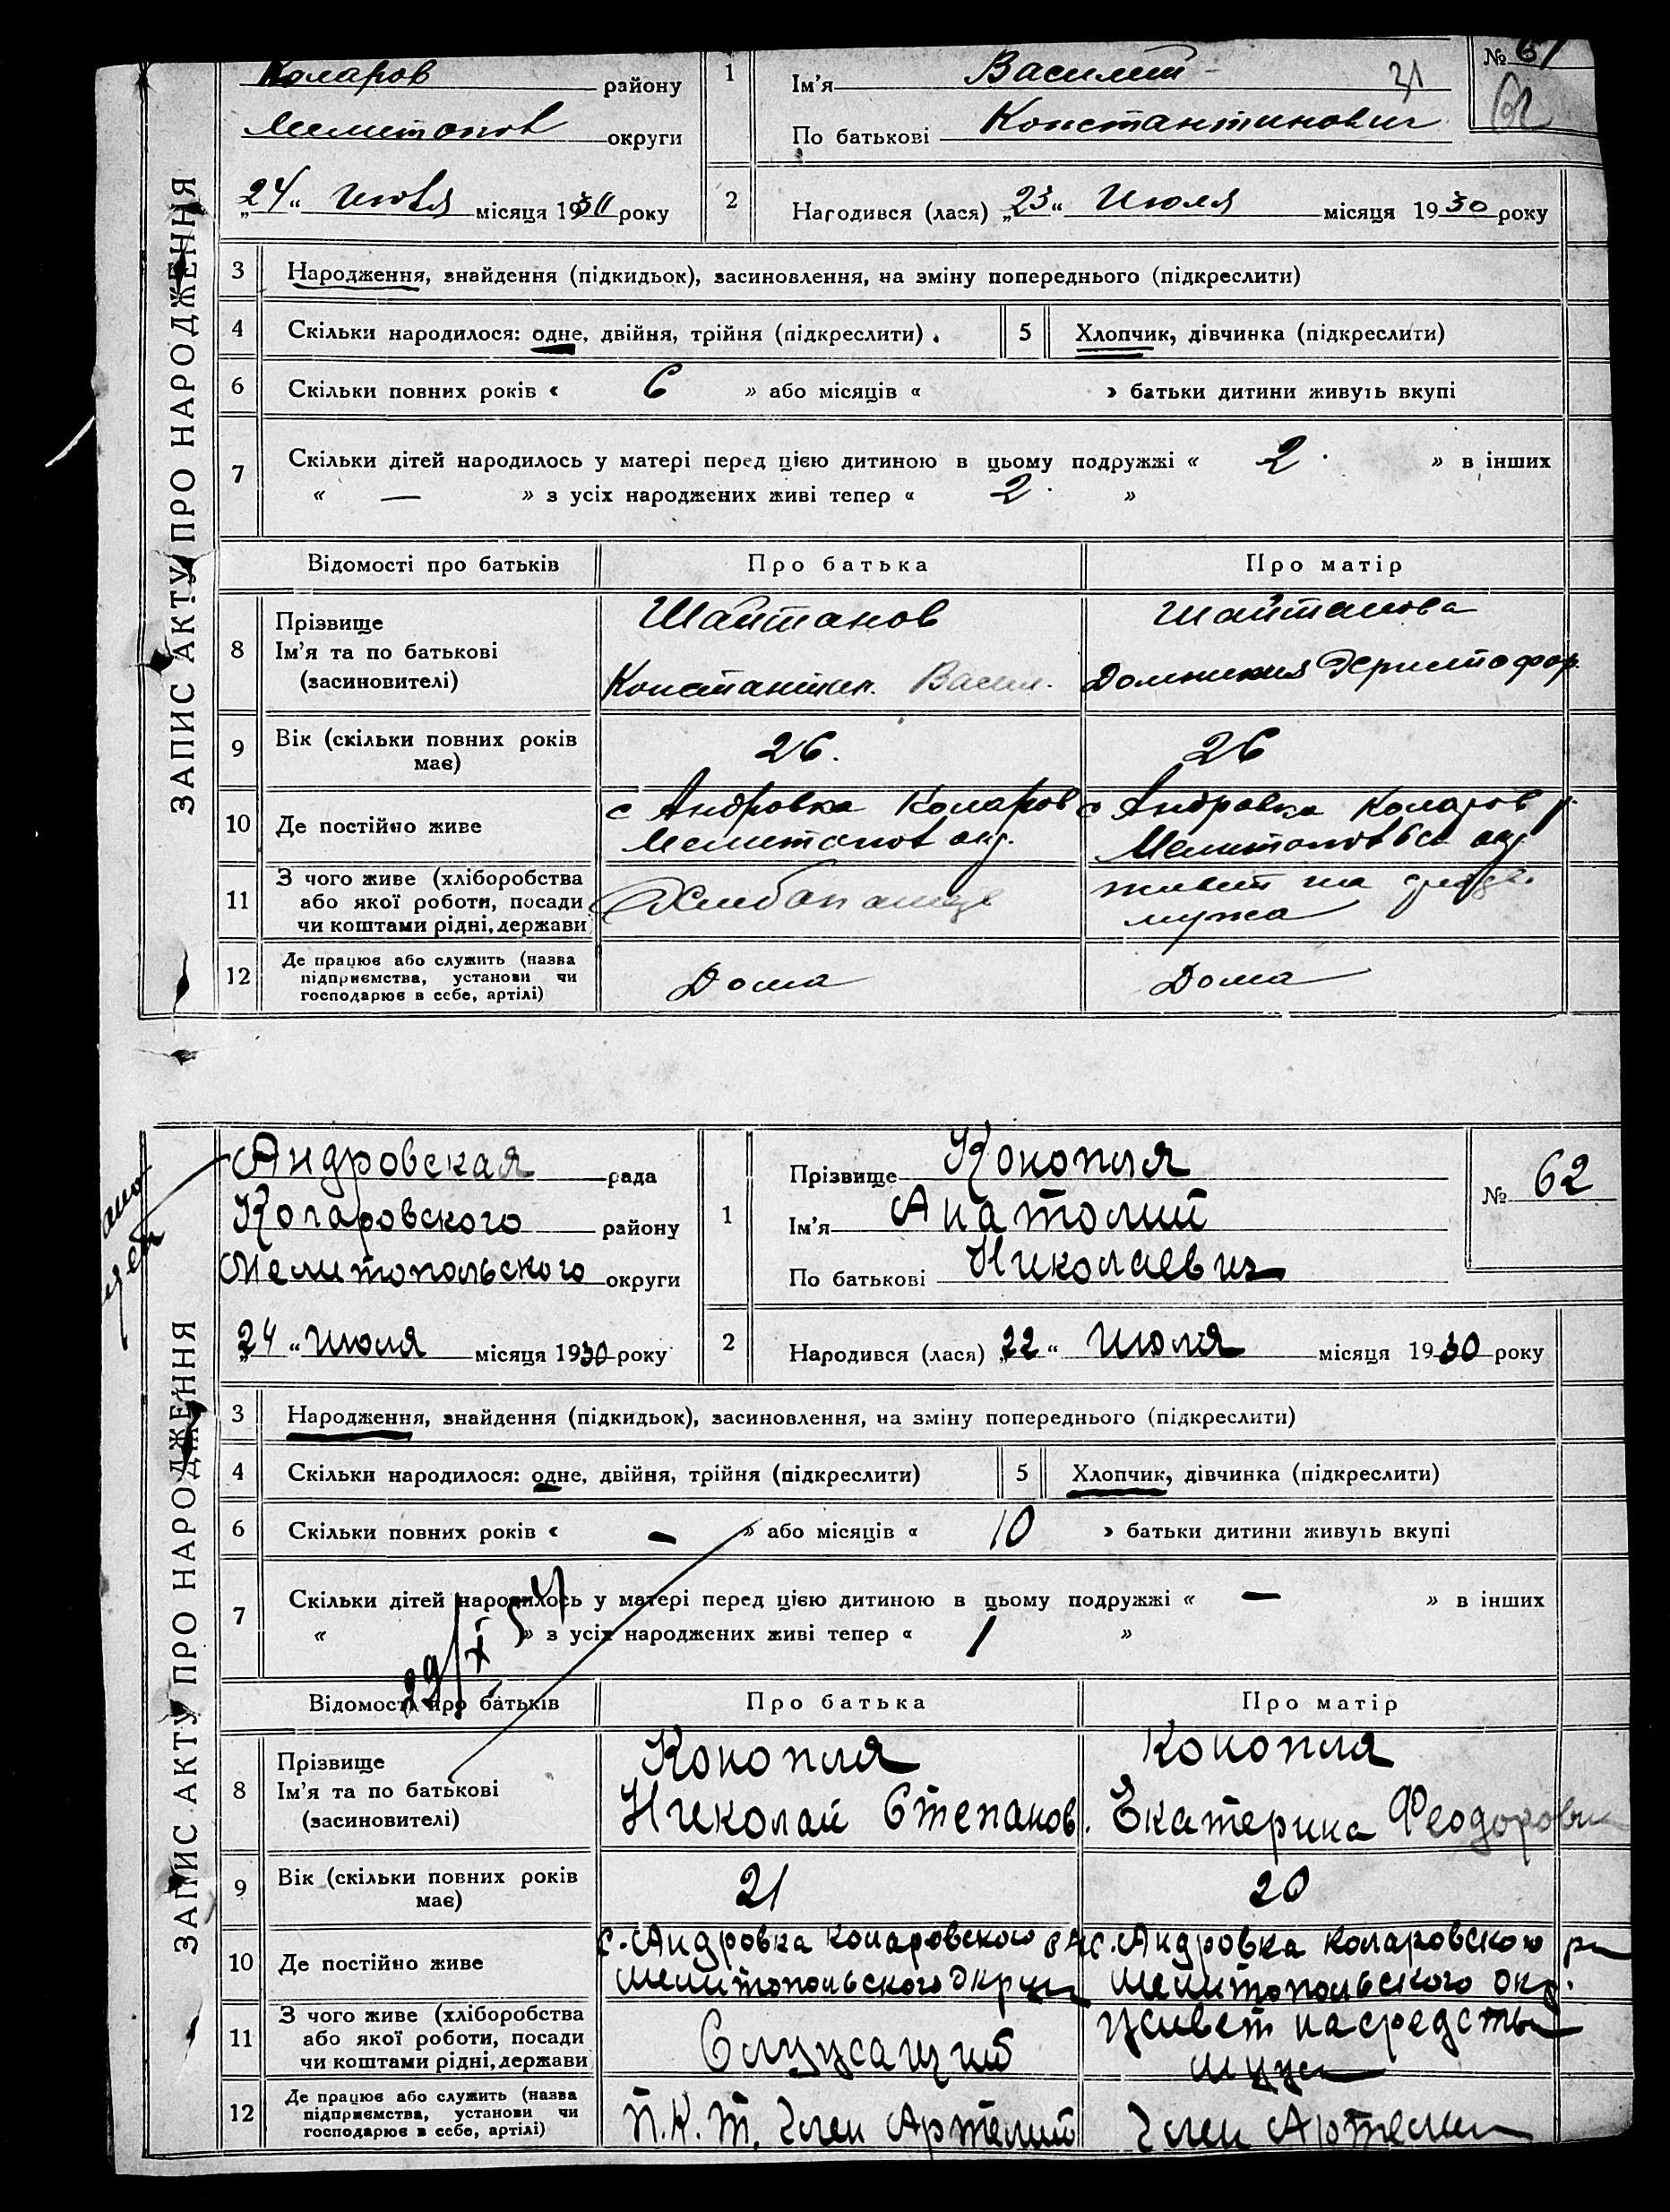 Коларов району
Мелитопов округи
„24“ Июля місяця 1930 року
1 Ім'я Василий 31
По батькові Константинович
№ 61
62
2 Народився (лася) „23“ Июля місяця 1930 року
ЗАПИС АКТУ ПРО НАРОДЖЕННЯ
3 Народження, знайдення (підкидьок), засиновлення, на зміну попереднього (підкреслити)
4 Скільки народилося: одне, двійня, трійня (підкреслити). 5 Хлопчик, дівчинка (підкреслити)
6 Скільки повних років « 6 » або місяців « » батьки дитини живуть вкупі
7 Скільки дітей народилось у матері перед цією дитиною в цьому подружжі « 2 » в інших
« — » з усіх народжених живі тепер « 2 »
Відомості про батьків Про батька Про матір
8 Прізвище Шайтанов Шайтанова
Ім'я та по батькові
(засиновителі) Константин. Васил. Домникия
9 Вік (скільки повних років має) 26. 26
10 Де постійно живе с Андровка Коларов с Андровка Коларов р.
Мелитопов окр. окр
11 З чого живе (хліборобства
або якої роботи, посади
чи коштами рідні, держави Живет на
мужа
12 Де працює або служить (назва
підприємства, установи чи
господарює в себе, артілі) Дома Дома
Андровская рада
Коларовского району
Мелитопольского округи
„24“ Июля місяця 1930 року
1 Прізвище Конопля
Ім'я Анатолий
По батькові Николаевич
№ 62
2 Народився (лася) „22“ Июля місяця 1930 року
ЗАПИС АКТУ ПРО НАРОДЖЕННЯ
3 Народження, знайдення (підкидьок), засиновлення, на зміну попереднього (підкреслити)
4 Скільки народилося: одне, двійня, трійня (підкреслити) 5 Хлопчик, дівчинка (підкреслити)
6 Скільки повних років « — » або місяців « 10 » батьки дитини живуть вкупі
7 Скільки дітей народилось у матері перед цією дитиною в цьому подружжі « — » в інших
« » з усіх народжених живі тепер « 1 »
Відомості про батьків Про батька Про матір
8 Прізвище Конопля Конопля
Ім'я та по батькові
(засиновителі) Николай Степанов. Екатерина Феодоровн
9 Вік (скільки повних років має) 21 20
10 Де постійно живе с. Андровка Коларовского с. Андровка Коларовского р
Мелитопольского Округи Мелитопольского окр.
11 З чого живе (хліборобства
або якої роботи, посади
чи коштами рідні, держави Живет на средства
мужа
12 Де працює або служить (назва
підприємства, установи чи
господарює в себе, артілі) Член Артелий Член Артели